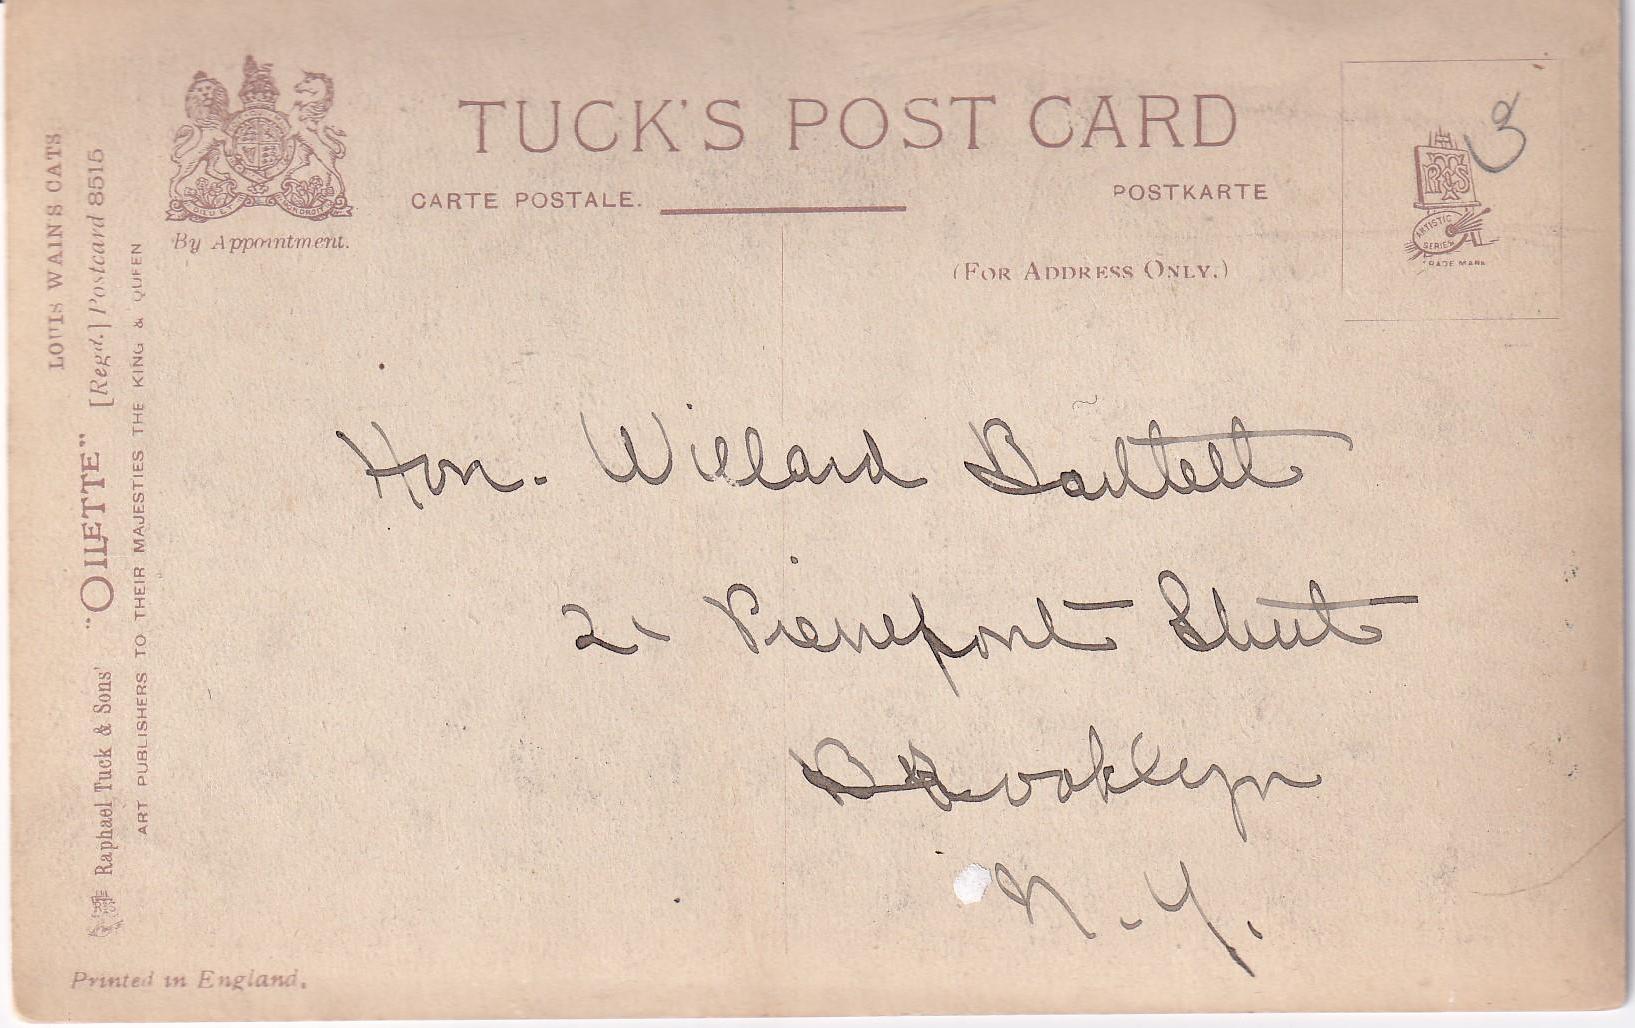 TUCK'S POST CARD
CARTE POSTALE.
POSTKARTE
By Appointment.
(FOR ADDRESS ONLY.)
ARTISTIC
SERIES
TRADE MARK
Hon. Willard Bartlett
21 Pierrepont Street
Brooklyn
N.Y.
LOUIS WAIN'S CATS
Raphael Tuck & Sons' "OILETTE" [Regd.] Postcard 8515
ART PUBLISHERS TO THEIR MAJESTIES THE KING & QUEEN
Printed in England.